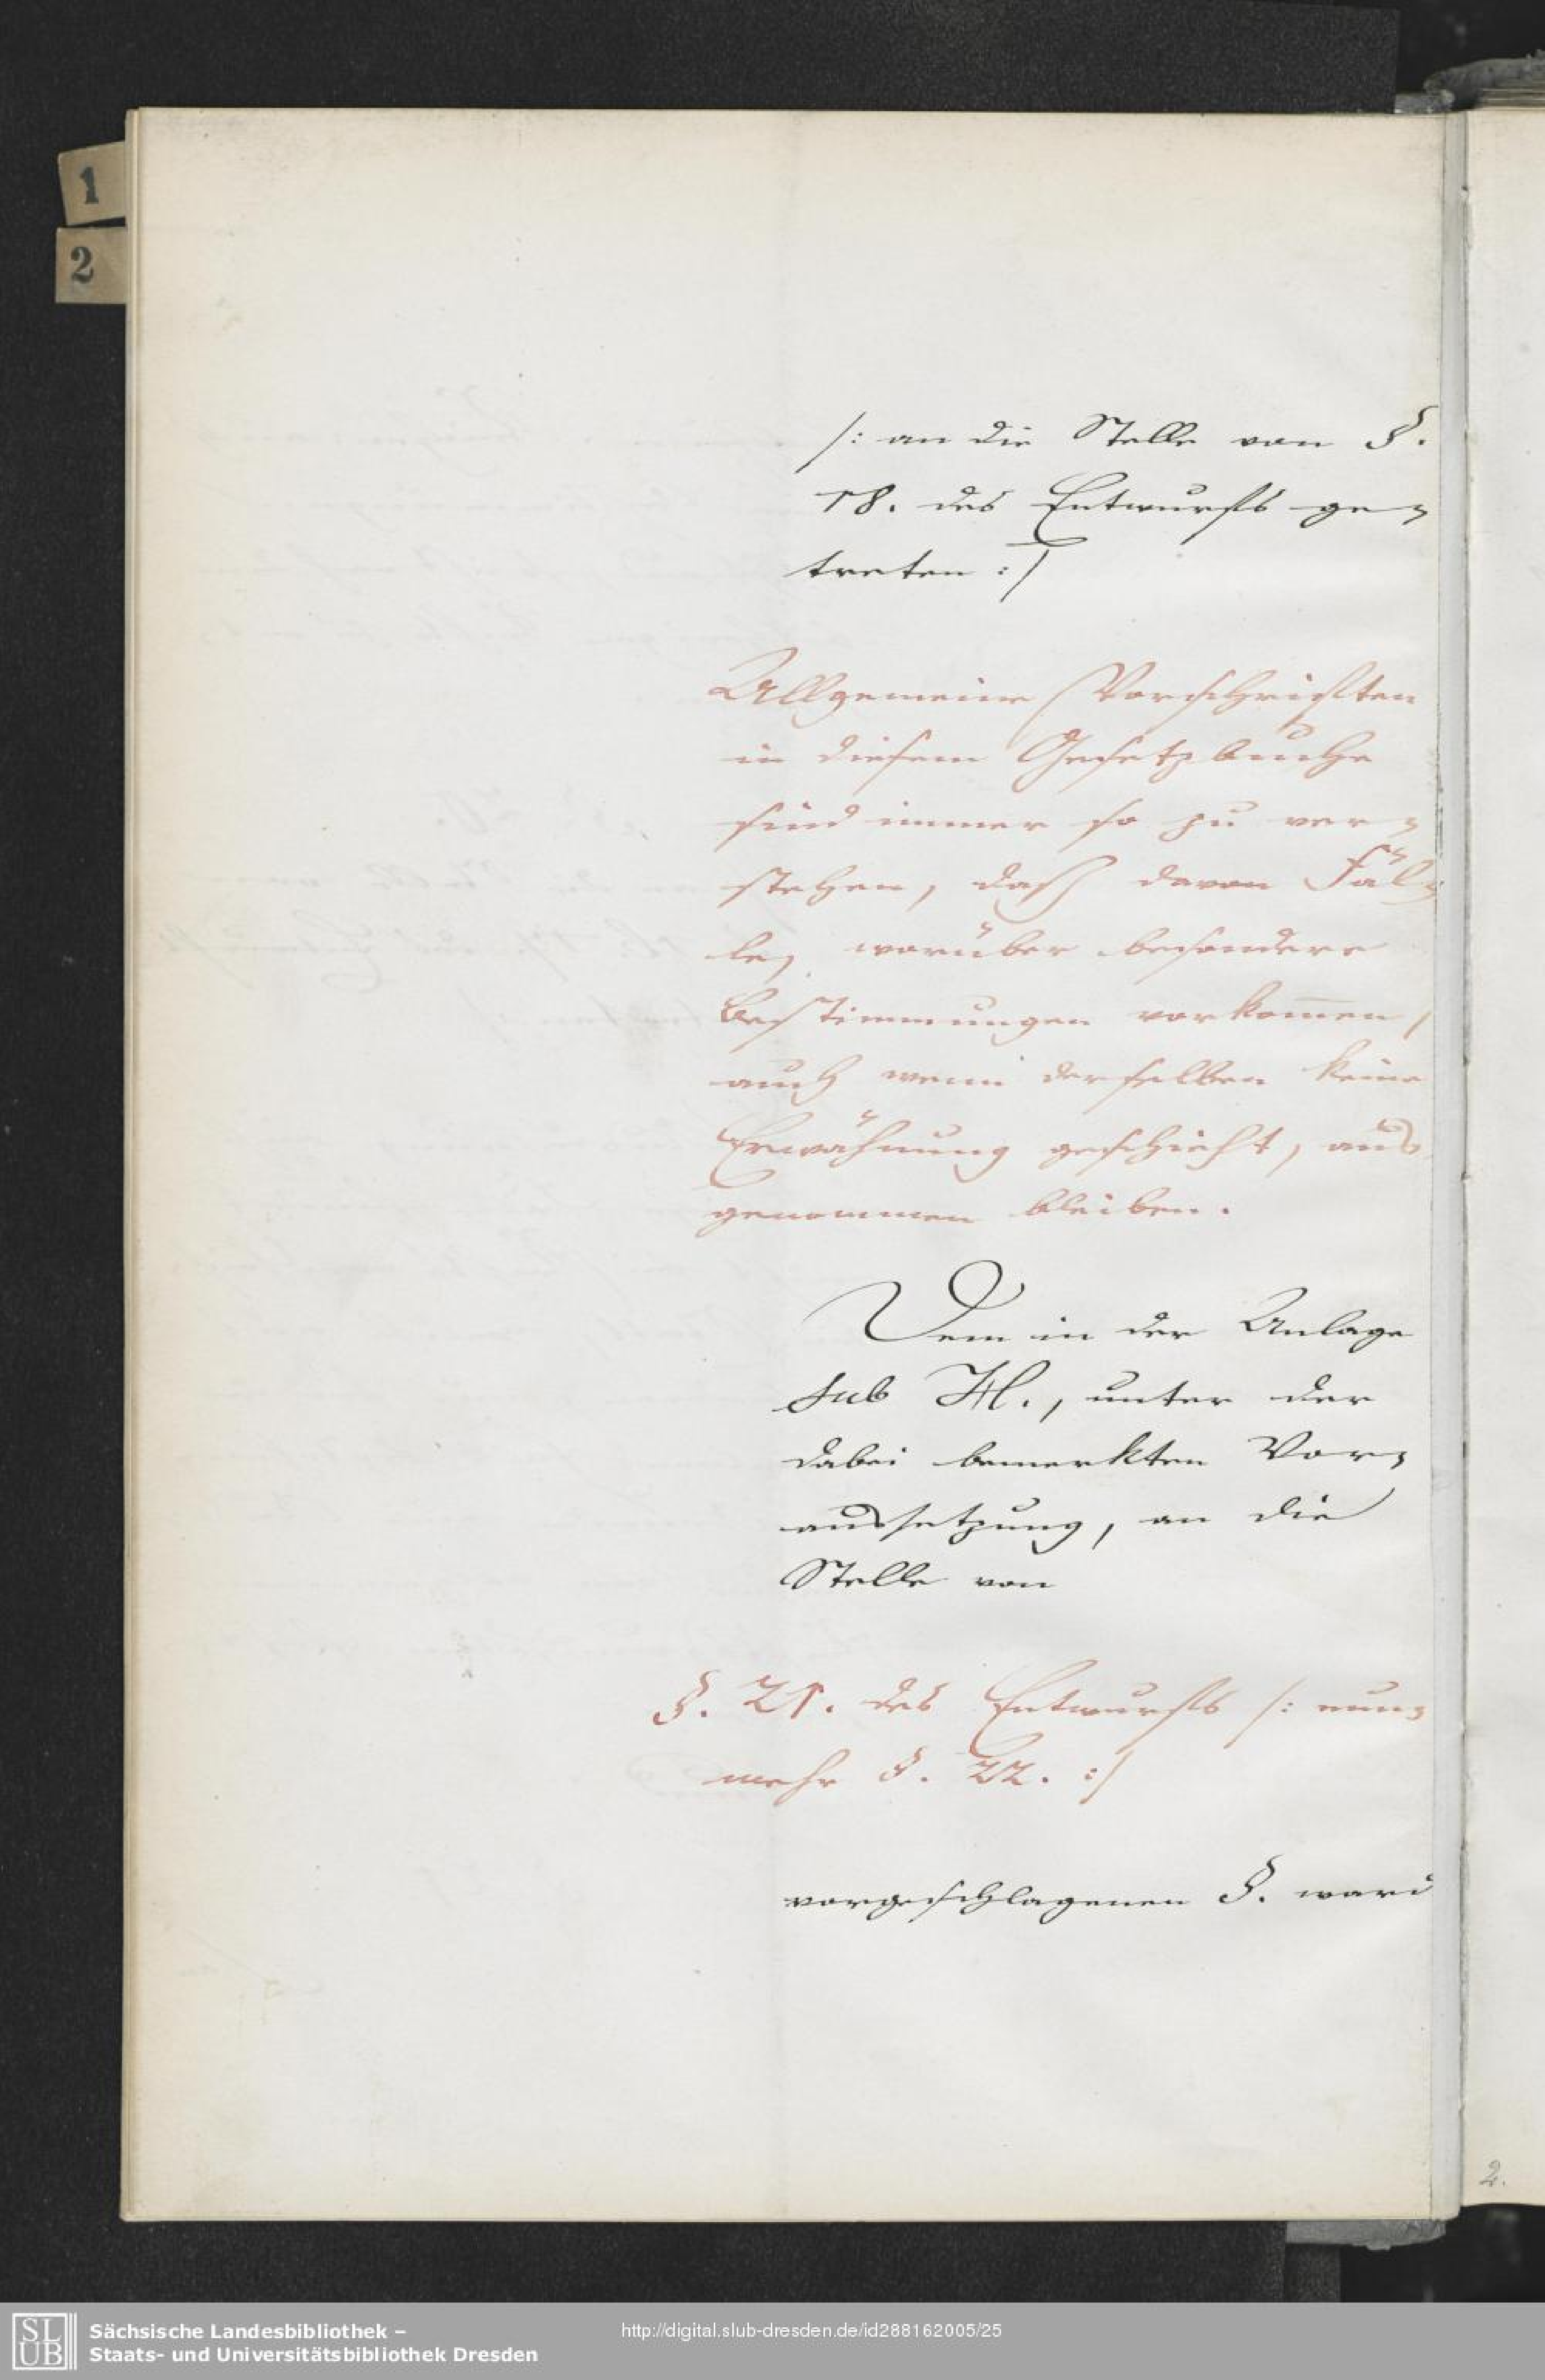 1
2
/: an die Stelle von §.
18. des Entwurfs ge-
treten :/
Allgemeine Vorschriften
in diesem Gesetzbuche
sind immer so zu ver-
stehen, daß davon Fäl-
le, worüber besondere
Bestimmungen vorkom̅en,
auch wenn derselben keine
Erwähnung geschieht, aus-
genommen bleiben.
Dem in der Anlage
sub H., unter der
dabei bemerkten Vor-
aussetzung, an die
Stelle von
§. 21. des Entwurfs /: nun-
mehr §. 22. :/
vorgeschlagenen §. ward
2.
SLUB
Sächsische Landesbibliothek –
Staats- und Universitätsbibliothek Dresden
http://digital.slub-dresden.de/id288162005/25